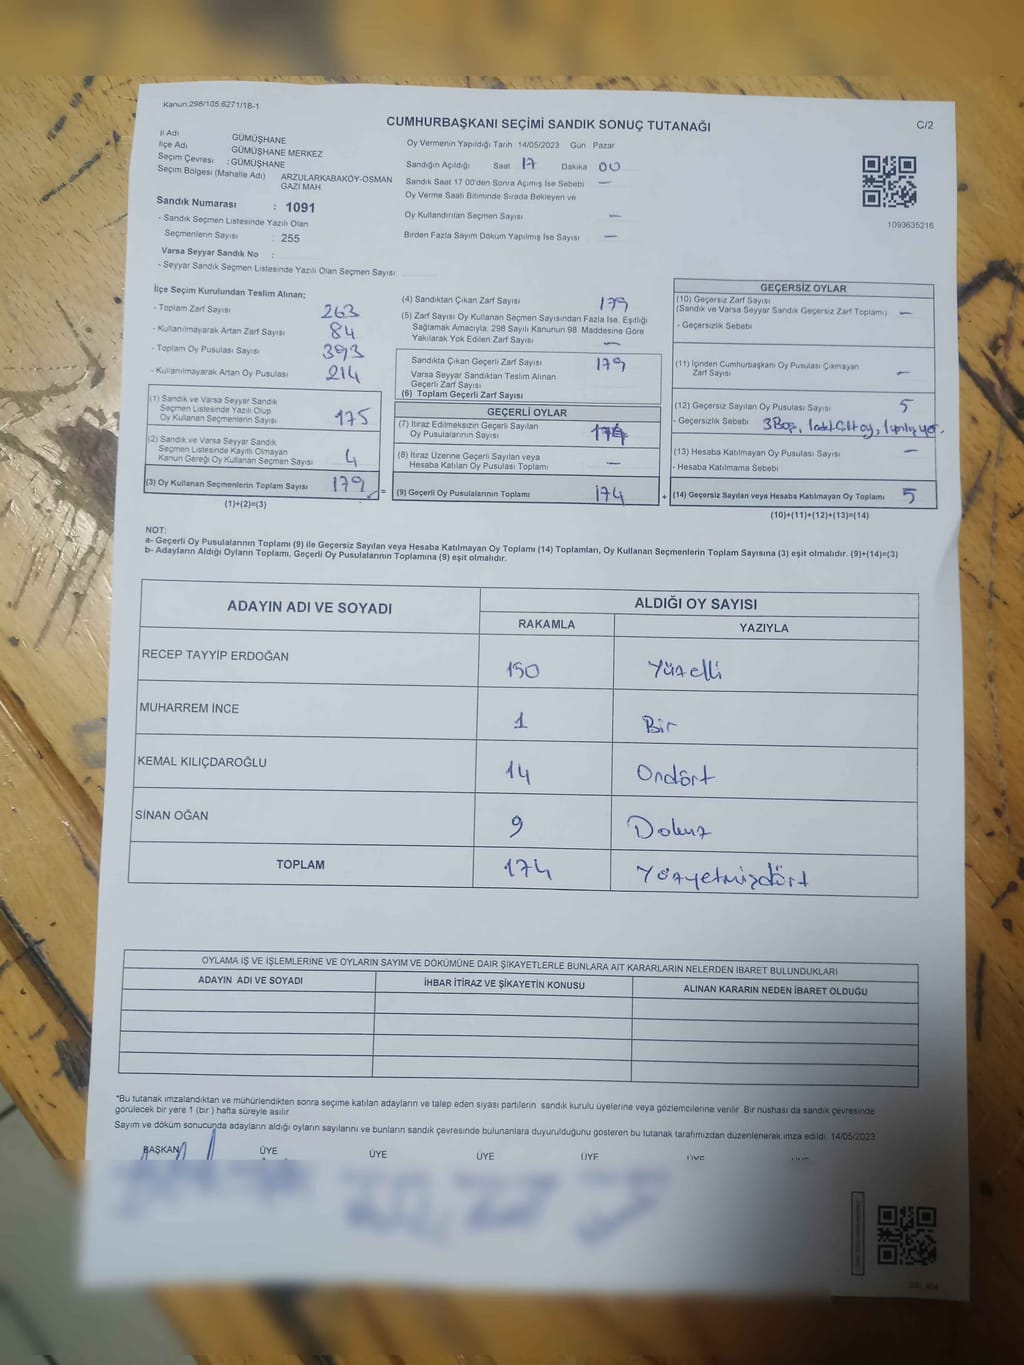 Kanun.298/105;6271/18-1
CUMHURBAŞKANI SEÇİMİ SANDIK SONUÇ TUTANAĞI
C/2
İl Adı GÜMÜŞHANE
İlçe Adı : GÜMÜŞHANE MERKEZ
Seçim Çevresi : GÜMÜŞHANE
Seçim Bölgesi (Mahalle Adı) ARZULARKABAKÖY-OSMAN GAZİ MAH
Sandık Numarası : 1091
- Sandık Seçmen Listesinde Yazılı Olan
Seçmenlerin Sayısı : 255
Varsa Seyyar Sandık No :
- Seyyar Sandık Seçmen Listesinde Yazılı Olan Seçmen Sayısı
Oy Vermenin Yapıldığı Tarih 14/05/2023 Gün Pazar
Sandığın Açıldığı Saat 17 Dakika 00
Sandık Saat 17 00'den Sonra Açımış İse Sebebi —
Oy Verme Saati Bitiminde Sırada Bekleyen ve
Oy Kullandırılan Seçmen Sayısı —
Birden Fazla Sayım Döküm Yapılmış İse Sayısı —
1093635216
İlçe Seçim Kurulundan Teslim Alınan;
- Toplam Zarf Sayısı 263
- Kullanılmayarak Artan Zarf Sayısı 84
- Toplam Oy Pusulası Sayısı 393
- Kullanılmayarak Artan Oy Pusulası 214
(1) Sandık ve Varsa Seyyar Sandık
Seçmen Listesinde Yazılı Olup
Oy Kullanan Seçmenlerin Sayısı 175
(2) Sandık ve Varsa Seyyar Sandık
Seçmen Listesinde Kayıtlı Olmayan
Kanun Gereği Oy Kullanan Seçmen Sayısı 4
(3) Oy Kullanan Seçmenlerin Toplam Sayısı 179 =
(1)+(2)=(3)
(4) Sandıktan Çıkan Zarf Sayısı 179
(5) Zarf Sayısı Oy Kullanan Seçmen Sayısından Fazla İse, Eşitliği
Sağlamak Amacıyla; 298 Sayılı Kanunun 98 Maddesine Göre
Yakılarak Yok Edilen Zarf Sayısı —
Sandıkta Çıkan Geçerli Zarf Sayısı 179
Varsa Seyyar Sandıktan Teslim Alınan
Geçerli Zarf Sayısı
(6) Toplam Geçerli Zarf Sayısı
GEÇERLİ OYLAR
(7) İtiraz Edilmeksizin Geçerli Sayılan
Oy Pusulalarının Sayısı 174
(8) İtiraz Üzerine Geçerli Sayılan veya
Hesaba Katılan Oy Pusulası Toplamı —
(9) Geçerli Oy Pusulalarının Toplamı 174 +
GEÇERSİZ OYLAR
(10) Geçersiz Zarf Sayısı
(Sandık ve Varsa Seyyar Sandık Geçersiz Zarf Toplamı) —
- Geçersizlik Sebebi
(11) İçinden Cumhurbaşkanı Oy Pusulası Çıkmayan
Zarf Sayısı —
(12) Geçersiz Sayılan Oy Pusulası Sayısı 5
- Geçersizlik Sebebi 3 Boş, 1 adet Çift oy, 1
(13) Hesaba Katılmayan Oy Pusulası Sayısı —
- Hesaba Katılmama Sebebi
(14) Geçersiz Sayılan veya Hesaba Katılmayan Oy Toplamı 5
(10)+(11)+(12)+(13)=(14)
NOT:
a- Geçerli Oy Pusulalarının Toplamı (9) ile Geçersiz Sayılan veya Hesaba Katılmayan Oy Toplamı (14) Toplamları, Oy Kullanan Seçmenlerin Toplam Sayısına (3) eşit olmalıdır. (9)+(14)=(3)
b- Adayların Aldığı Oyların Toplamı, Geçerli Oy Pusulalarının Toplamına (9) eşit olmalıdır.
ADAYIN ADI VE SOYADI ALDIĞI OY SAYISI
RAKAMLA YAZIYLA
RECEP TAYYİP ERDOĞAN 150 Yüzelli
MUHARREM İNCE 1 Bir
KEMAL KILIÇDAROĞLU 14 Ondört
SİNAN OĞAN 9 Dokuz
TOPLAM 174 Yüzyetmişdört
OYLAMA İŞ VE İŞLEMLERİNE VE OYLARIN SAYIM VE DÖKÜMÜNE DAİR ŞİKAYETLERLE BUNLARA AİT KARARLARIN NELERDEN İBARET BULUNDUKLARI
ADAYIN ADI VE SOYADI İHBAR İTİRAZ VE ŞİKAYETİN KONUSU ALINAN KARARIN NEDEN İBARET OLDUĞU
*Bu tutanak imzalandıktan ve mühürlendikten sonra seçime katılan adayların ve talep eden siyasi partilerin sandık kurulu üyelerine veya gözlemcilerine verilir Bir nüshası da sandık çevresinde
görülecek bir yere 1 (bir ) hafta süreyle asılır
Sayım ve döküm sonucunda adayların aldığı oyların sayılarını ve bunların sandık çevresinde bulunanlara duyurulduğunu gösteren bu tutanak tarafımızdan düzenlenerek imza edildi 14/05/2023
BAŞKAN ÜYE ÜYE ÜYE ÜYE ÜYE